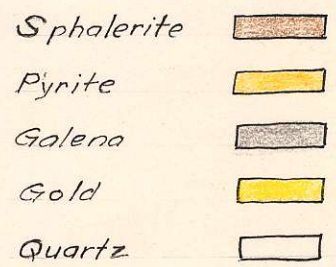 Sphalerite
Pyrite
Galena
Gold
Quartz